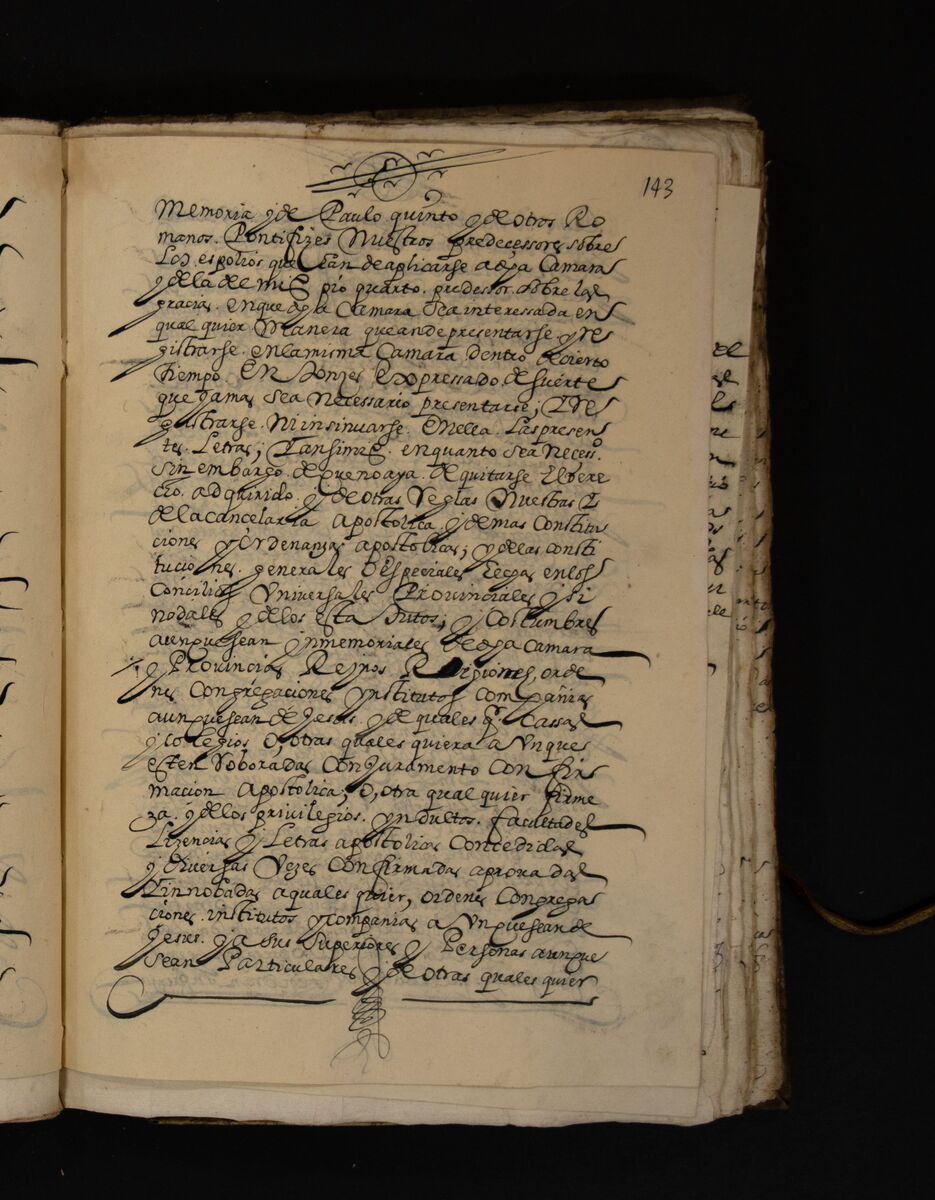 143
Memoria y de Paulo quinto y de otros Ro
manos. Pontifizes Nuestros predecessores sobre
Los espolios que sean de aplicarse a dha Camara
y de la de mis pio quarto. predessor. sobre las
gracias. en que dha Camara sea interessada en
qual quier Manera que ande presentarse y re
gistrarse. en la misma Camara dentro de cierto
tiempo. en Expressado. de suerte
que Jamas sea Necessario presentarse; y re
gistrarse. Ni insinuarse. en ella. Las presen
tes. Letras; en quanto sea Neces.o
sin embargo. de que no aya. de quitarse el dere
cio. adquirido. y de otras reglas Nuestras
de la cancelaria apostolica. y demas constitu
ciones y ordenanzas apostolicas; y de las consti
tuciones. generales o especiales en los
Concilios Vniversales Provinciales y si
nodales y de los estatutos; y costumbres
aunque sean ynmemoriales de dha Camara
y Provincias Reynos Religiones, orde
nes Congregaciones ynstitutos compañias
aunque sean de Jesus. y de quales q.r Cassas
y colegios o, otras quales quiera aunque
esten roboradas con Juramento confir
macion apostolica; o, otra qual quier firme
za. y de los privilegios. yndultos. facultades
Lizencias y Letras apostolicas concedidas
y diversas vezes confirmadas aprovadas
innobadas a quales quier, ordenes congrega
ciones. institutos y companias aunque sean de
Jesus. y a sus superiores y Personas aunque
sean Particulares y de otras quales quier